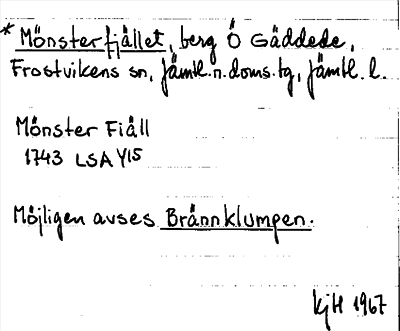 * Mönsterfjället, berg Ö Gäddede,
Frostvikens sn, Jämtl.n.doms.tg, Jämtl. l.
Mönster Fiäll
1743 LSA Y15
Möjligen avses Brännklumpen.
KjH 1967